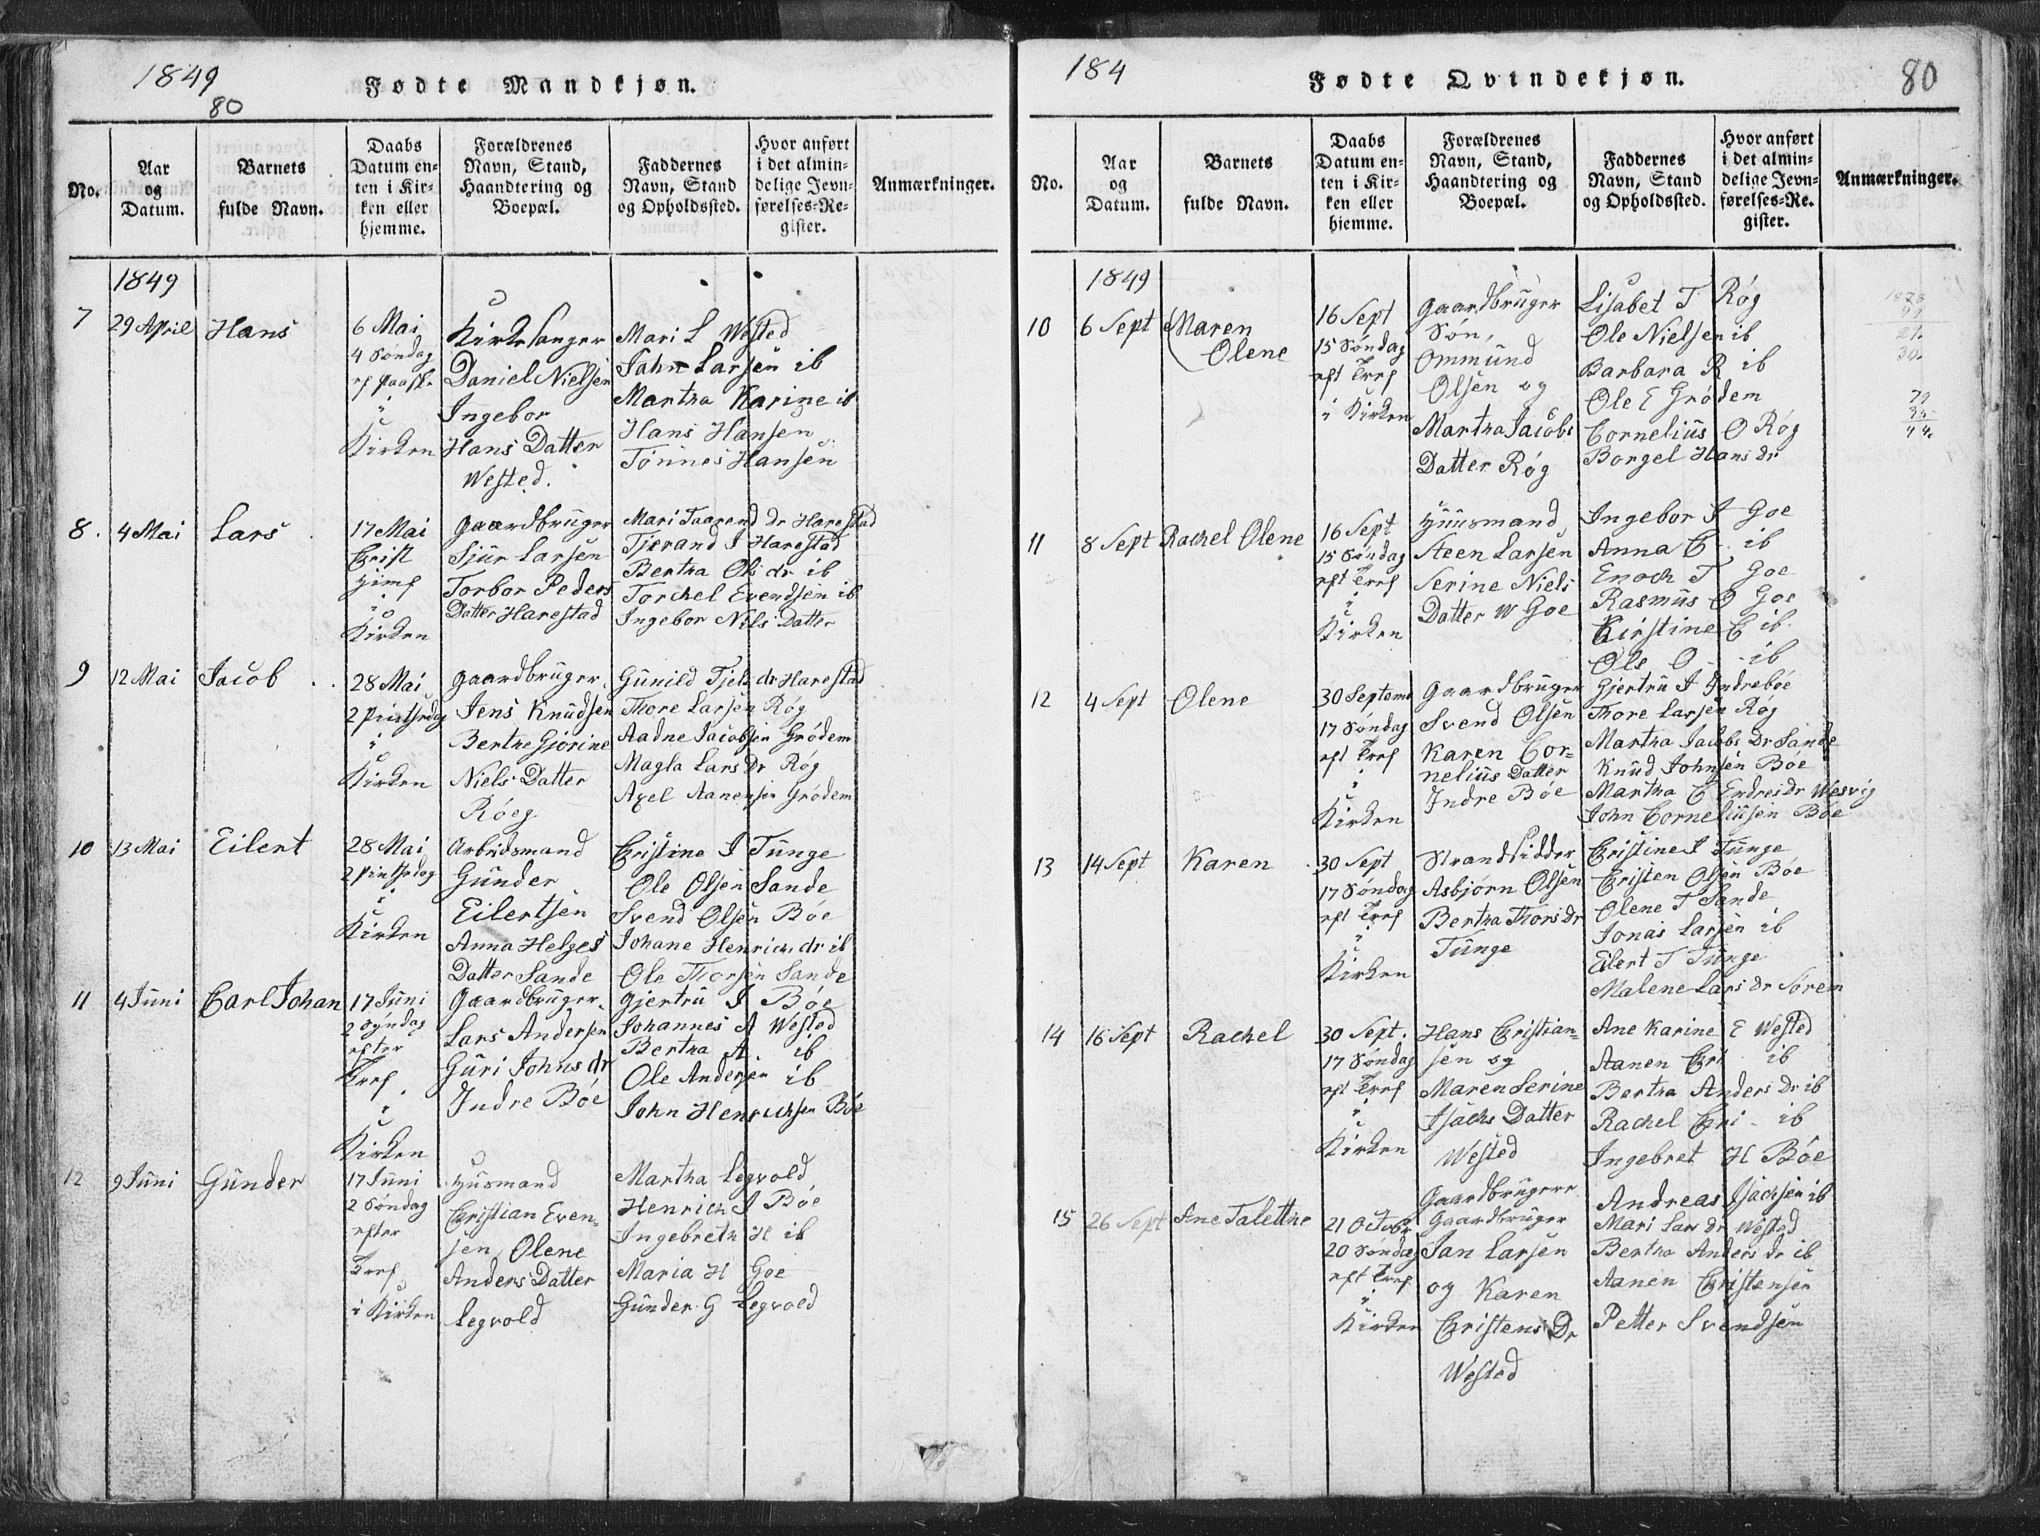 1849
80
Fødte Mandkjøn.
No.
Aar
og
Datum.
Barnets
fulde Navn.
Daabs
Datum en-
ten i Kir-
ken eller
hjemme.
Forældrenes
Navn, Stand,
Haandtering og
Boepæl.
Faddernes
Navn, Stand
og Opholdssted.
Hvor anført
i det almin-
delige Jevn-
førelses-Re-
gister.
Anmærkninger.
1849
7
29 April
Hans
6 Mai
4 Søndag
ef Paaske
i
Kirken
Kirkesanger
Daniel Nielsen
Ingebor
Hans Datter
Wested.
Mari L Wested
Jahn Larsen ib
Martha Karine ib
Hans Hansen
Tønnes Hansen
8.
4 Mai
Lars
17 Mai
Crist
Himf
i
Kirken
Gaardbruger
Sjur Larsen
Torbor Peders
Datter Harestad
Mari Taarend dr Harestad
Tjerand I Harestad
Bertha Ols dr ib
Torchel Evendsen ib
Ingebor Nils Datter
9
12 Mai
Jacob
28 Mai
2 Pintsedag
i
Kirken
Gaardbruger
Jens Knudsen
Berthe Gjorine
Niels Datter
Röeg
Gunild Tjels dr Harestad
Thore Larsen Røg
Aadne Jacobsen Grødem
Magla Lars Dr Røg
Axel Aanensen Grødem
10
13 Mai
Eilert
28 Mai
2 Pintsedag
i
Kirken
Arbeidsmand
Gunder
Eilertsen
Anna Helges
Datter Sande
Cristine I Tunge
Ole Olsen Sande
Svend Olsen Bøe
Johane Henrichs dr ib
Ole Thorsen Sande
11
4 Juni
Carl Johan
17 Juni
2 Søndag
efter
Tref
i
Kirken
Gaardbruger
Lars Andersen
Guri Johns dr
Indre Bøe
Gjertru I Bøe
Johannes A Wested
Bertha A. ib
Ole Andersen ib
John Henrichsen Bøe
12
9 Juni
Gunder
17 Juni
2 Søndag
efter
Tref
i Kirken
Husmand
Cristian Even-
sen, Olene
Anders Datter
Legvold
Martha Legvold
Henrich I Bøe
Ingebreth H ib
Maria H Goe
Gunder G Legvold
184
Fødte Qvindekjøn.
80
No.
Aar
og
Datum.
Barnets
fulde Navn.
Daabs
Datum en-
ten i Kir-
ken eller
hjemme.
Forældrenes
Navn, Stand,
Haandtering og
Boepæl.
Faddernes
Navn, Stand
og Opholdssted.
Hvor anført
i det almin-
delige Jevn-
førelses-Re-
gister.
Anmærkninger.
1849
10
6 Sept
Maren
Olene
16 Sept
15 Søndag
eft Tref
i Kirken
Gaardbruger
Søn,
Ommund
Olsen og
Martha Jacobs
Datter Røg
Lisabet T Røg
Ole Nielsen ib
Barbara R ib
Ole E Grødem
Cornelius O Røg
Borgel Hans dr
11
8 Sept
Rachel Olene
16 Sept
15 Søndag
eft Tref
i
Kirken
Huusmand
Steen Larsen
Serine Niels
Datter W Goe
Ingebor I Goe
Anna C. ib
Enoch T Goe
Rasmus O Goe
Kirstine C ib
Ole O ib
12
4 Sept
Olene
30 Septemr
17 Søndag
eft Tref
i
Kirken
Gaardbruger
Svend Olsen
Karen Cor-
nelius Datter
Indre Bøe
Gjertru I Indrebøe
Thore Larsen Røg
Martha Jacobs Dr Sande
Knud Johnsen Bøe
Martha C Endres Dr Wesvig
John Corneliusen Bøe
13
14 Sept
Karen
30 Sept
17 Søndag
eft Tref
i
Kirken
Strandsidder
Asbjørn Olsen
Bertha Thors Dr
Tunge
Cristine I Tunge
Cristen Olsen Bøe
Olene T Sande
Jonas Larsen ib
Eilert T Tunge
Malene Lars dr Sørem
14
16 Sept
Rachel
30 Sept.
17 Søndag
eft Tref
i
Kirken
Hans Cristian-
sen og
Maren Serine
Isachs Datter
Wested
Gaardbrugere
Ane Karine E Wested
Aanen Cri ib
Bertha Anders Dr ib
Rachel Cri. ib
Ingebret H Bøe
Andreas Isachsen ib
15
26 Sept
Ane Talettine
21 Octobr
20 Søndag
eft Tref
i
Kirken
Gaardbruger
Jan Larsen
og Karen
Cristens Dr
Wested
Mari Lars dr Wested
Bertha Anders dr ib
Aanen Cristensen
Petter Svendsen